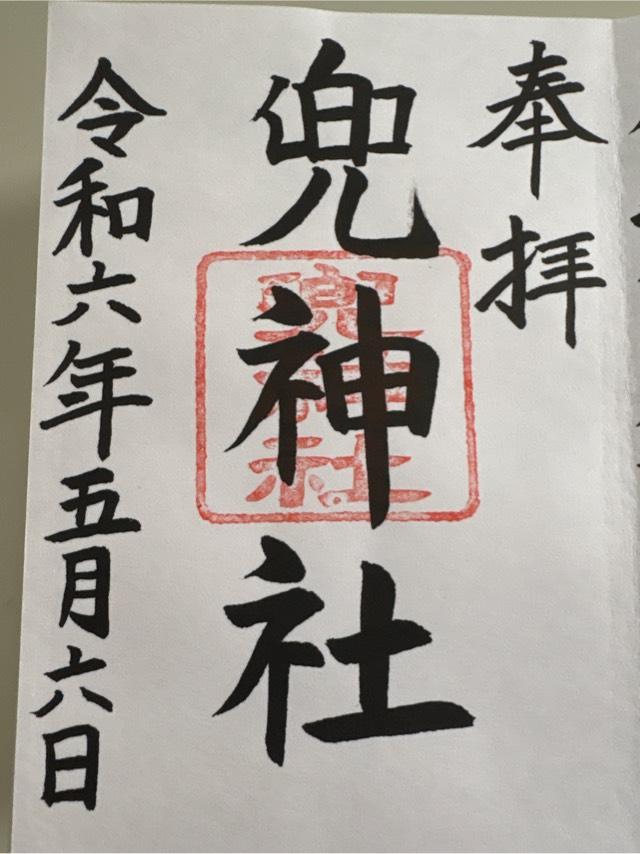 奉拝
兜神社
兜神社
令和六年五月六日